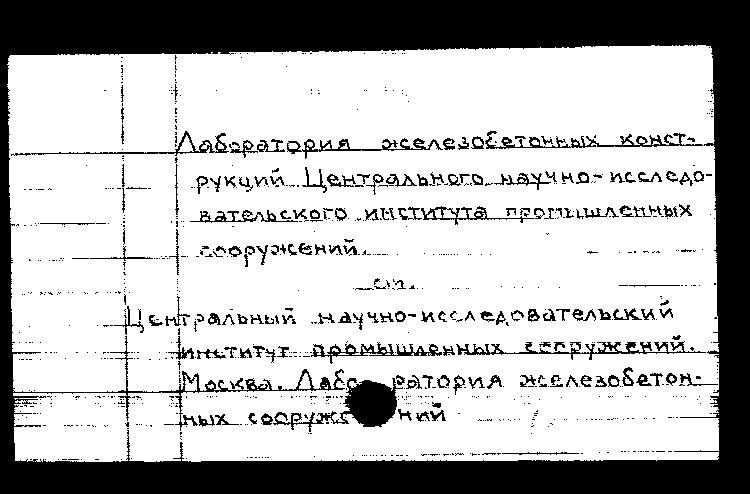 Лаборатория железобетонных конст-
рукций Центрального научно-исследо-
вательского института промышленных
сооружений.
см.
Центральный научно-исследовательский
институт промышленных сооружений.
Москва. Лаборатория железобетон-
ных сооружений